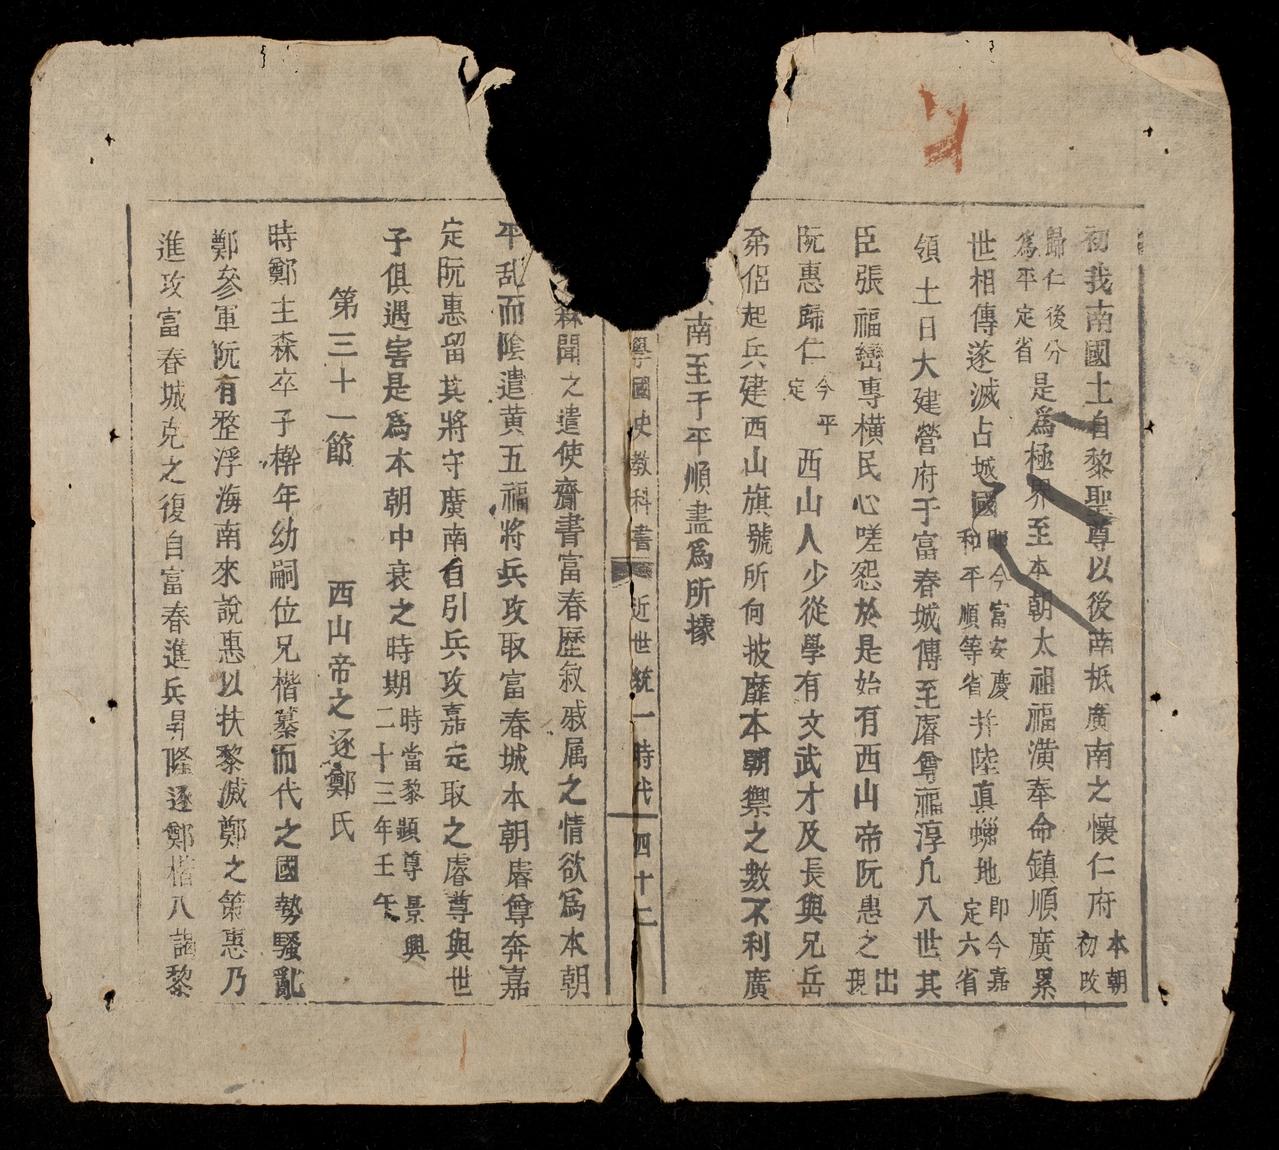 初我南國土自黎聖尊以後南抵廣南之懷仁府本朝初改
歸仁後分為平定省是為極界至本朝太祖福潢奉命鎮順廣累
世相傳遂滅占城國即今富安慶和平順等省并陸真蠟地即今嘉定六省
領土日大建營府于富春城傳至睿尊福淳凡八世其
臣張福巒專橫民心嗟怨於是始有西山帝阮惠之出現
阮惠歸仁今平定西山人少從學有文武才及長與兄岳
弟侶起兵建西山旗號所向披靡本朝禦之數不利廣
南至于平順盡為所據
學國史教科書 近世統一時代 四十二
森聞之遣使齎書富春歷敘戚属之情欲為本朝
平乱而陰遣黄五福將兵攻取富春城本朝睿尊奔嘉
定阮惠留其將守廣南自引兵攻嘉定取之睿尊與世
子俱遇害是為本朝中衰之時期時當黎顯尊景興二十三年壬午
第三十一節 西山帝之逐鄭氏
時鄭主森卒子檊年幼嗣位兄楷篡而代之國勢騷亂
鄭參軍阮有整浮海南來說惠以扶黎滅鄭之策惠乃
進攻富春城克之復自富春進兵昇隆逐鄭楷入謁黎